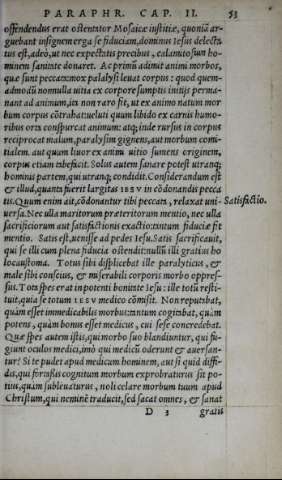 PARAPHR. CAP. II. 53
offendendus erat ostentator Mosaicæ iustitiæ, quoniã ar-
guebant insignem erga se fiduciam, dominus Iesus delecta
tus est, adeò, ut nec expectatis precibus, calamitoſum ho-
minem sanitate donaret. Ac primũ adimit animi morbos,
quæ sunt peccata: mox palalysi leuat corpus: quod quem-
admodũ nonnulla uitia ex corpore sumptis initijs perma-
nant ad animum, ita non raro fit, ut ex animo natum mor
bum corpus cõtrahat: ueluti quum libido ex carnis humo-
ribus orta conspurcat animum: atq; inde rursus in corpus
reciprocat malum, paralysim gignens, aut morbum comi-
tialem. aut quum liuor ex animi uitio sumens originem,
corpus etiam tabefacit. Solus autem sanare potest utranq;
hominis partem, qui utranq; condidit. Considerandum est
& illud, quantis fuerit largitas IESV in cõdonandis pecca
tis. Quum enim ait, cõdonantur tibi peccata, relaxat uni- Satisfactio.
uersa. Nec ulla maritorum præteritorum mentio, nec ulla
sacrificiorum aut satisfactionis exactio: tantum fiduciæ fit
mentio. Satis est, uenisse ad pedes Iesu. Satis sacrificauit,
qui se illi cum plena fiducia ostendit: nullũ illi gratius ho
locaustoma. Totus sibi displicebat ille paralyticus, &
male sibi conscius, & miserabili corporis morbo oppres-
sus. Tota spes erat in potenti bonitate Iesu: ille totũ resti-
tuit, quia se totum IESV medico cõmisit. Non reputabat,
quàm esset immedicabilis morbus: tantum cogitabat, quàm
potens, quàm bonus esset medicus, cui sese concredebat.
Quæ spes autem istis, qui morbo suo blandiuntur, qui fu-
giunt oculos medici, imò qui medicũ oderunt & auersan-
tur? Si te pudet apud medicum hominem, aut si quid diffi-
dis, qui fortassis cognitum morbum exprobraturus sit po-
tius, quàm subleuaturus, noli celare morbum tuum apud
Christum, qui neminẽ traducit, sed sacat omnes, & sanat
D 3 gratis